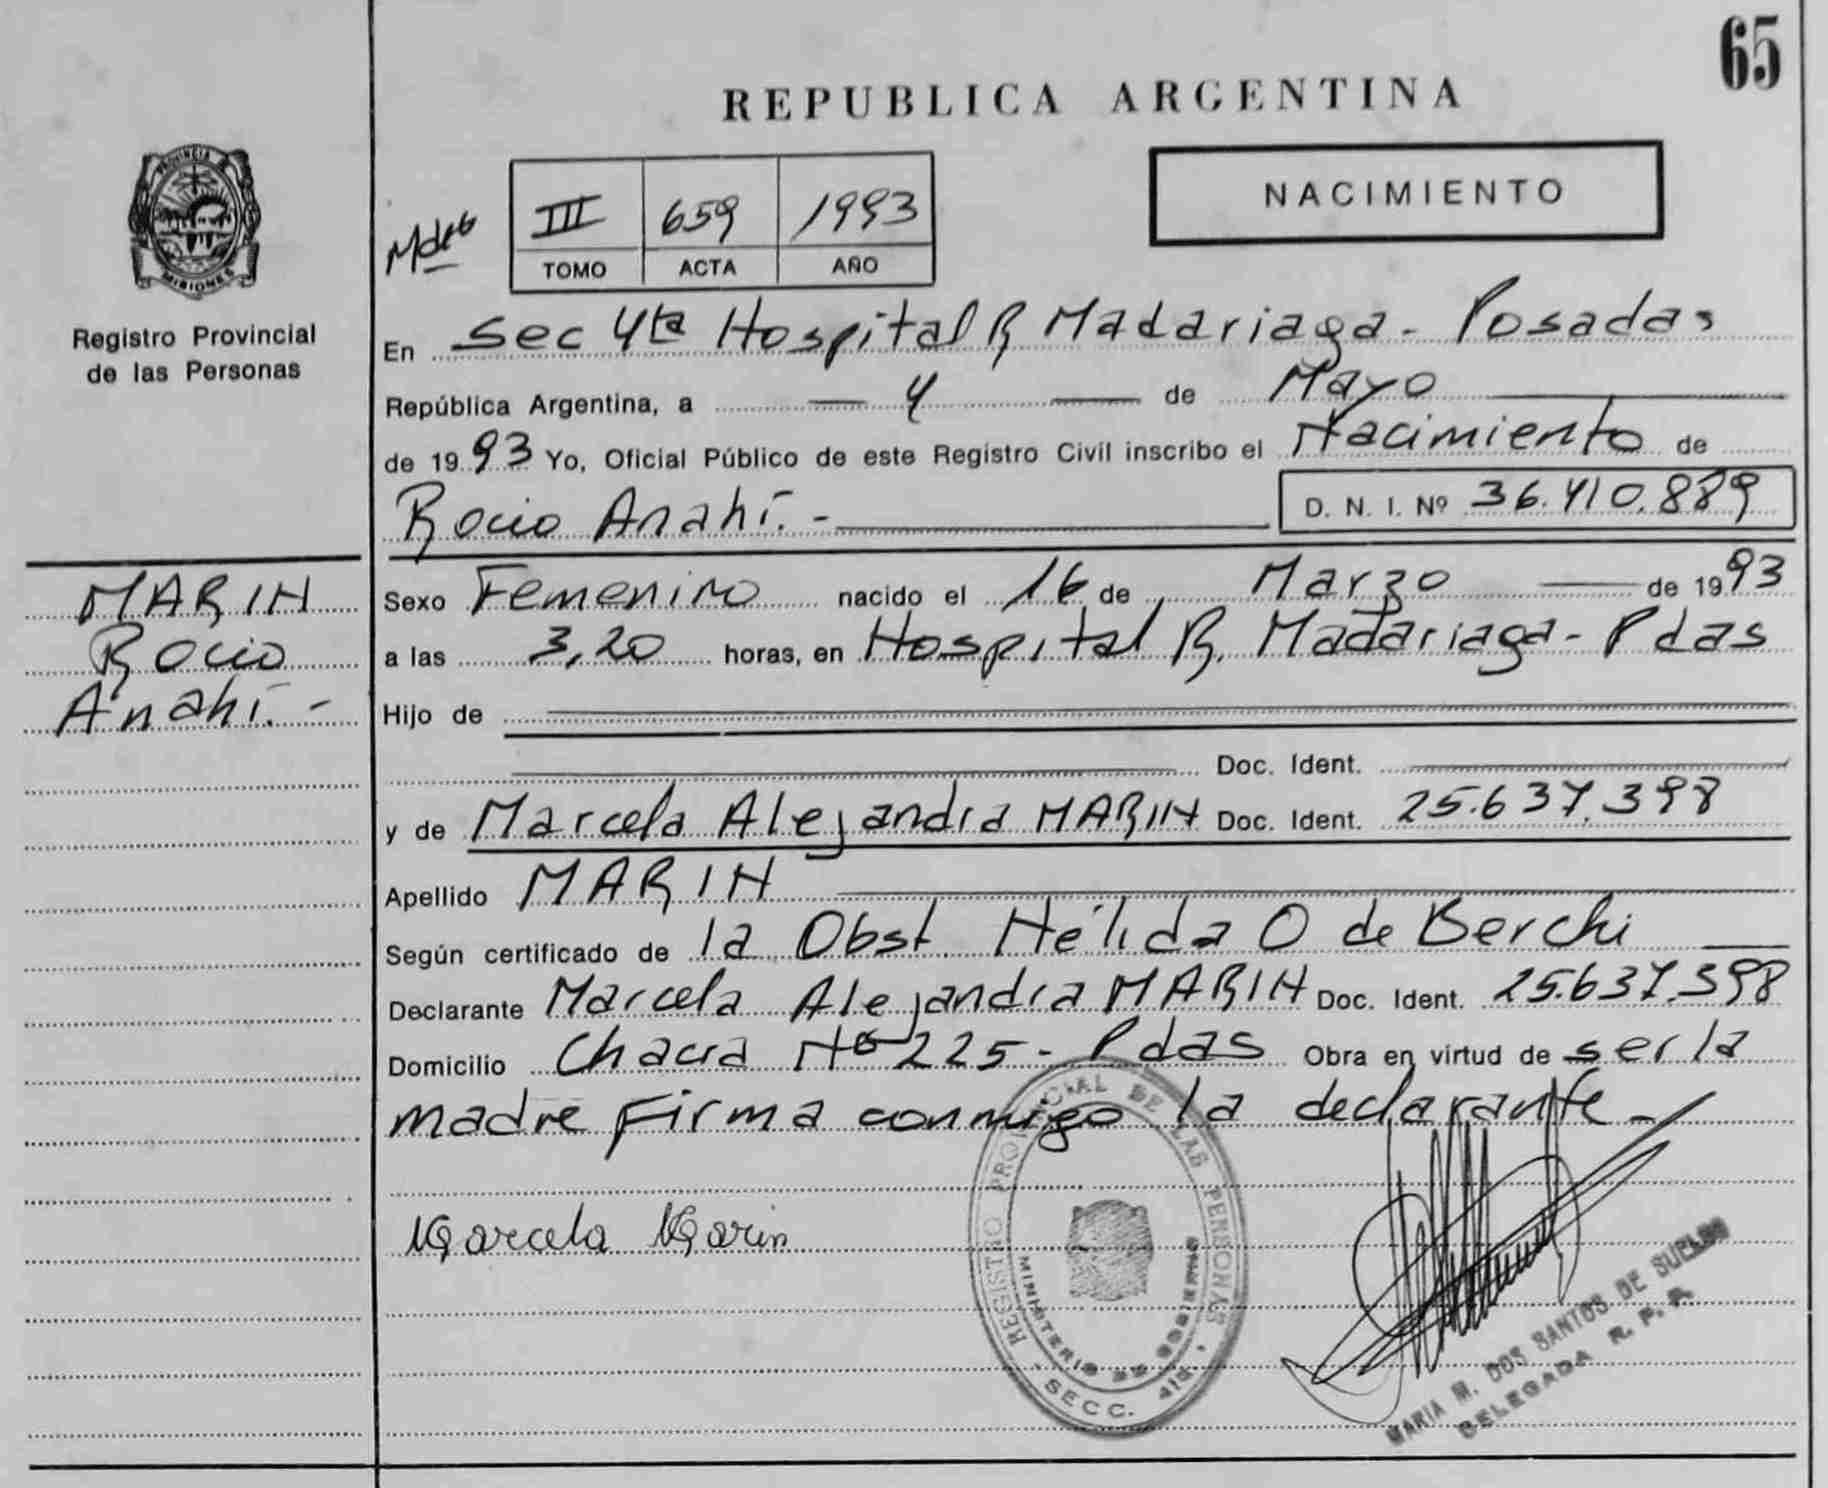 65
REPUBLICA ARGENTINA
PROVINCIA DE
MISIONES
Registro Provincial
de las Personas
III 659 1993
TOMO ACTA AÑO
NACIMIENTO
En Sec 4ta Hospital R Madariaga - Posadas
República Argentina, a — 4 — de Mayo
de 1993 Yo, Oficial Público de este Registro Civil inscribo el Nacimiento de
Rocio Anahí. - D. N. I. Nº 36.410.889
MARIN
Rocio
Anahí. -
Sexo Femenino nacido el 16 de Marzo de 1993
a las 3,20 horas, en Hospital R. Madariaga - Pdas
Hijo de
Doc. Ident.
y de Marcela Alejandra MARIN Doc. Ident. 25.637.398
Apellido MARIN
Según certificado de la Obst. Hélida O de Berchi
Declarante Marcela Alejandra MARIN Doc. Ident. 25.637.398
Domicilio Chacra Nº 225 - Pdas Obra en virtud de ser la
madre firma conmigo la declarante -
Marcela Marin
REGISTRO PROVINCIAL DE LAS PERSONAS
MINISTERIO DE GOBIERNO
SECC. 4ta.
MARIA M. DOS SANTOS DE
DELEGADA R. P. P.